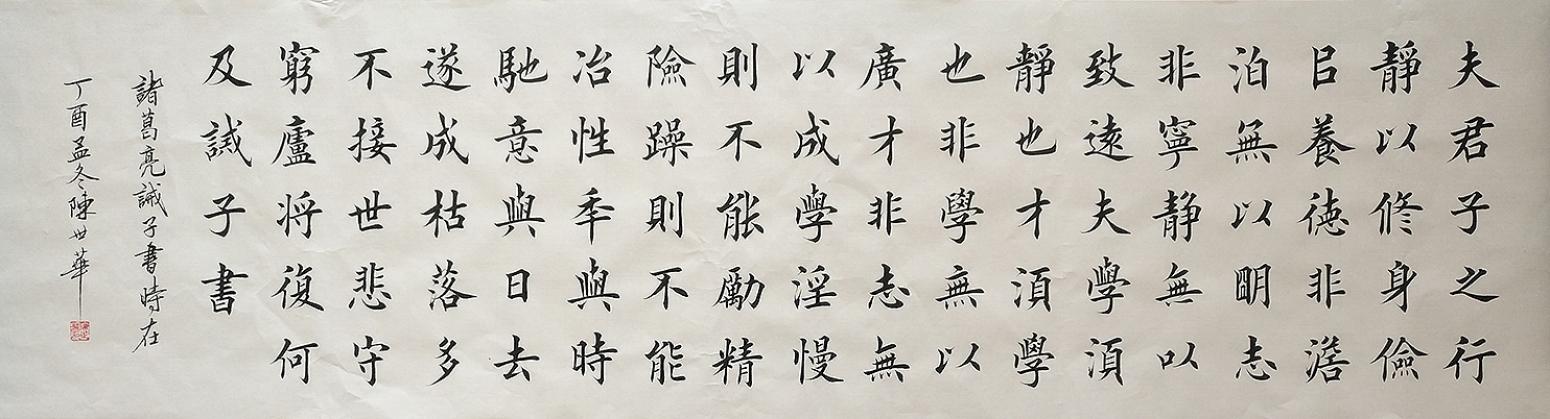 夫君子之行
静以修身儉
㠯養徳非澹
泊無以朙志
非寧靜無以
致遠夫學須
靜也才須學
也非學無以
廣才非志無
以成學淫慢
則不能勵精
險躁則不能
冶性秊與時
馳意與日去
遂成枯落多
不接世悲守
窮廬将復何
及誡子書
諸葛亮誡子書時在
丁酉孟冬陳世華